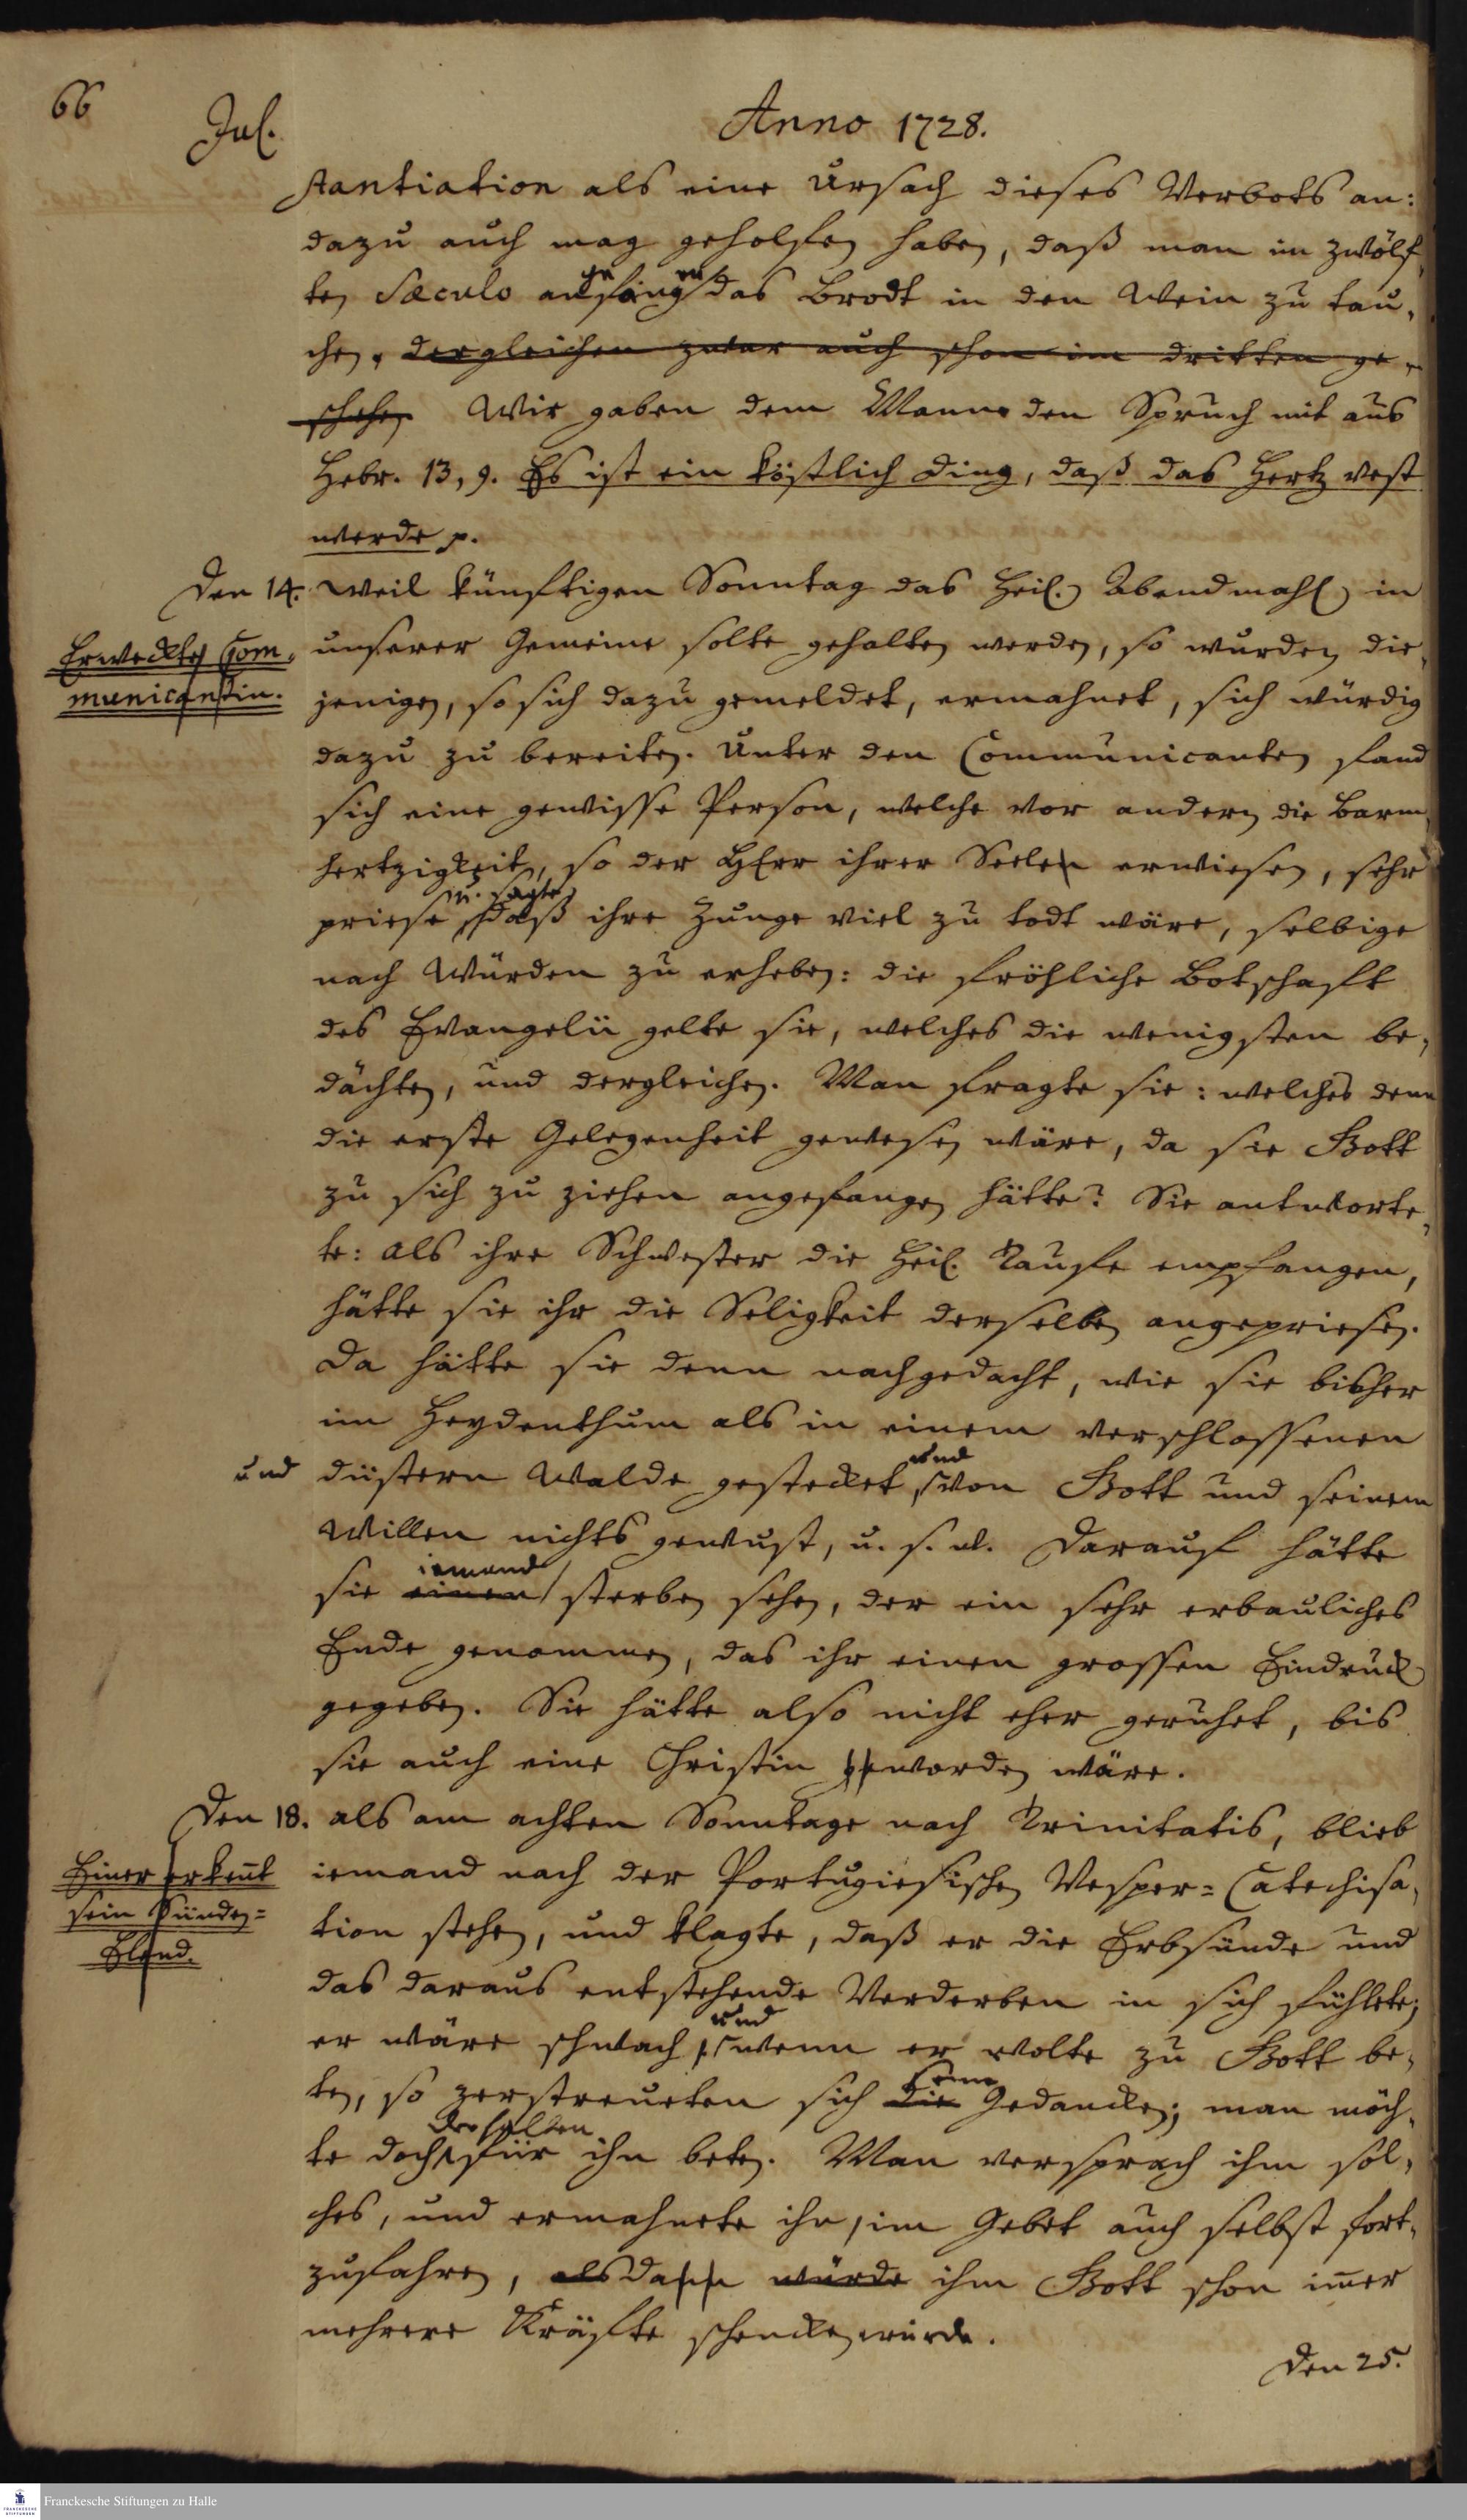 66
Jul.
Anno 1728.
stantiation als eine Ursach dieses Verbots an:
dazu auch mag geholfen haben, daß man im zwölf-
ten Sæculo das Brodt in den Wein zu tau-
chen, dergleichen zwar auch schon im dritten ge-
schehen. Wir gaben dem Manne den Spruch mit aus
Hebr. 13, 9. Es ist ein köstlich Ding, daß das Hertz vest
werde p.
Den 14. Weil künftigen Sonntag das Heil. Abendmahl in
Erweckte Com-
municantin.
unserer Gemeine solte gehalten werden, so wurden die-
jenigen, so sich dazu gemeldet, ermahnet, sich würdig
dazu zu bereiten. Unter den Communicanten fand
sich eine gewisse Person, welche vor andern die Barm-
hertzigkeit, so der HErr ihrer Seelen erwiesen, sehr
u. sagte
priese, daß ihre Zunge viel zu todt wäre, selbige
nach Würden zu erheben: die fröhliche Botschaft
des Evangelii gelte sie, welches die wenigsten be-
dächten, und dergleichen. Man fragte sie: welches denn
die erste Gelegenheit gewesen wäre, da sie Gott
zu sich zu ziehen angefangen hätte? Sie antworte-
te: als ihre Schwester die Heil. Taufe empfangen,
hätte sie ihr die Seligkeit derselben angepriesen.
Da hätte sie denn nachgedacht, wie sie bisher
im Heydenthum als in einem verschlossenen
und
und düstern Walde gestecket, von Gott und seinem
Willen nichts gewust, u. s. w. Darauf hätte
iemand
sie einen sterben sehen, der ein sehr erbauliches
Ende genommen, das ihr einen grossen Eindruck
gegeben. Sie hätte also nicht eher geruhet, bis
sie auch eine Christin worden wäre.
Den 18. als am achten Sonntage nach Trinitatis, blieb
Einer erkent
sein Sünden=
Elend.
iemand nach der Portugiesischen Vesper=Catechisa-
tion stehen, und klagte, daß er die Erbsünde und
das daraus entstehende Verderben in sich fühlete;
und
er wäre schwach, wenn er wolte zu Gott be-
seine
ten, so zerstreueten sich die Gedancken; man möch-
deshalben
te doch für ihn beten. Man versprach ihm sol-
ches, und ermahnete ihn, im Gebet auch selbst fort-
zufahren, als würde ihm Gott schon im̄er
mehrere Kräfte schencken würde.
Den 25.
Franckesche Stiftungen zu Halle